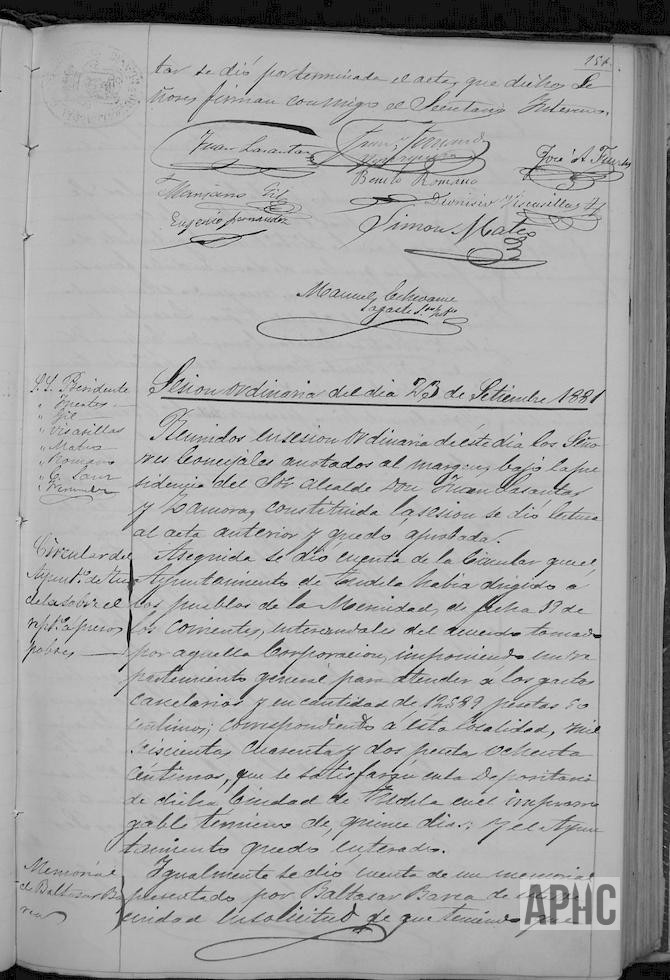 tar se dió por terminada el acta, que dichos Se
ñores firman conmigo el Secretario Interino.
Juan Lasantas
José A. Fuertes
Mariano Gil
Benito Romano
Dionisio Viscasillas
Eugenio Fernandez
Simon Mateo
Manuel Echevarne
Sagaste
Sesion ordinaria del dia 23 de Setiembre 1881
S.S. Presidente
" Fuertes
" Gil
" Viscasillas
" Mateo
" Romano
Reunidos en sesion ordinaria de éste dia los Seño
res Concejales anotados al margen, bajo la pre
sidencia del Sor. Alcalde Don Juan Lasantas
y Zamora, constituida la sesion se dió lectura
al acta anterior y quedó aprobada.
Circular del
Ayuntº. de Tu
dela sobre el
repto. a presos
pobres
Aseguida se dió cuenta de la Circular que el
Ayuntamiento de Tudela habia dirigido á
los pueblos de la Merindad, de fecha 19 de
los corrientes, del acuerdo tomado
por aquella Corporacion, imponiendo un re
partimiento general para atender a los gastos
carcelarios y en cantidad de 12.589 pesetas 50
centimos; correspondiendo a esta localidad, mil
seiscientas cuarenta y dos peseta ochenta
centimos, que se satisfarán en la Depositaria
de dicha Ciudad de Tudela en el improrro
gable término de quince dias; y el Ayun
tamiento quedó enterado.
Memorial
de Baltasar Ba
rea
Igualmente se dió cuenta de un memorial
presentado por Baltasar Barea de esta ve
cindad en solicitud de que teniendo que
APHC